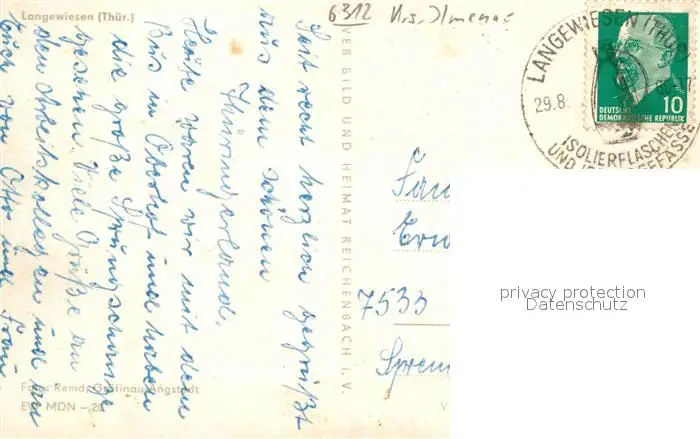 Langewiesen (Thür.)
6312 Krs. Ilmenau
Seit recht herzlich gegrüßt
aus dem schönen
Thüringerland.
Heute waren wir mit dem
Bus in Oberhof und haben
die große Sprungschanze
gesehen. Viele Grüße an
den Arbeitskollegen und an
euch von Otto und Frau
Foto: Remd, Gräfinau-Angstedt
EVP MDN –,20
VEB BILD UND HEIMAT REICHENBACH I. V.
LANGEWIESEN (THÜR)
29.8.
ISOLIERFLASCHEN
UND
GEFÄSSE
DEUTSCHE
DEMOKRATISCHE REPUBLIK
10
Fam
7533
Sprem
V
privacy protection
Datenschutz